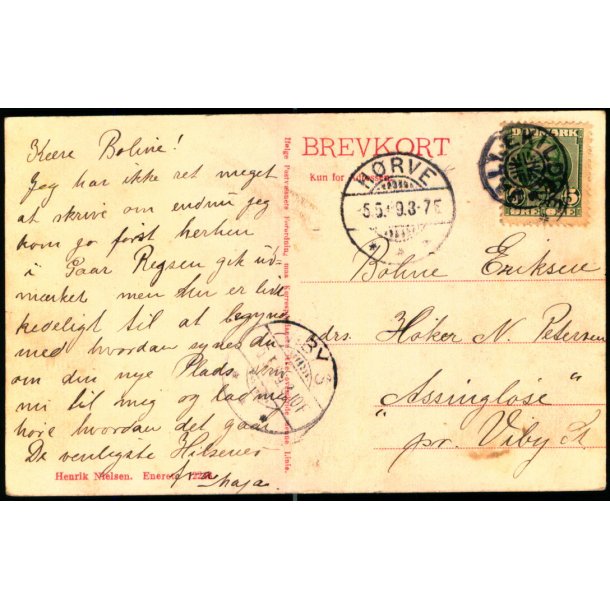 Kære Boline!
Jeg har ikke ret meget
at skrive om endnu jeg
kom jo først herhen
i Gaar Rejsen gik ud-
mærket men den er lidt
kedeligt til at begynde
med hvordan synes du
om din nye Plads skriv
nu til mig og lad mig
høre hvordan det gaar
De venligste Hilsener
fra Maja.
Henrik Nielsen. Eneret.
BREVKORT
Kun for Adressen.
KØRVE
5.5. 9.3-7E
DANMARK
5 5
ØRE
Boline Eriksen
adrs. Høker N. Petersen
"Assingløse"
pr. Viby St